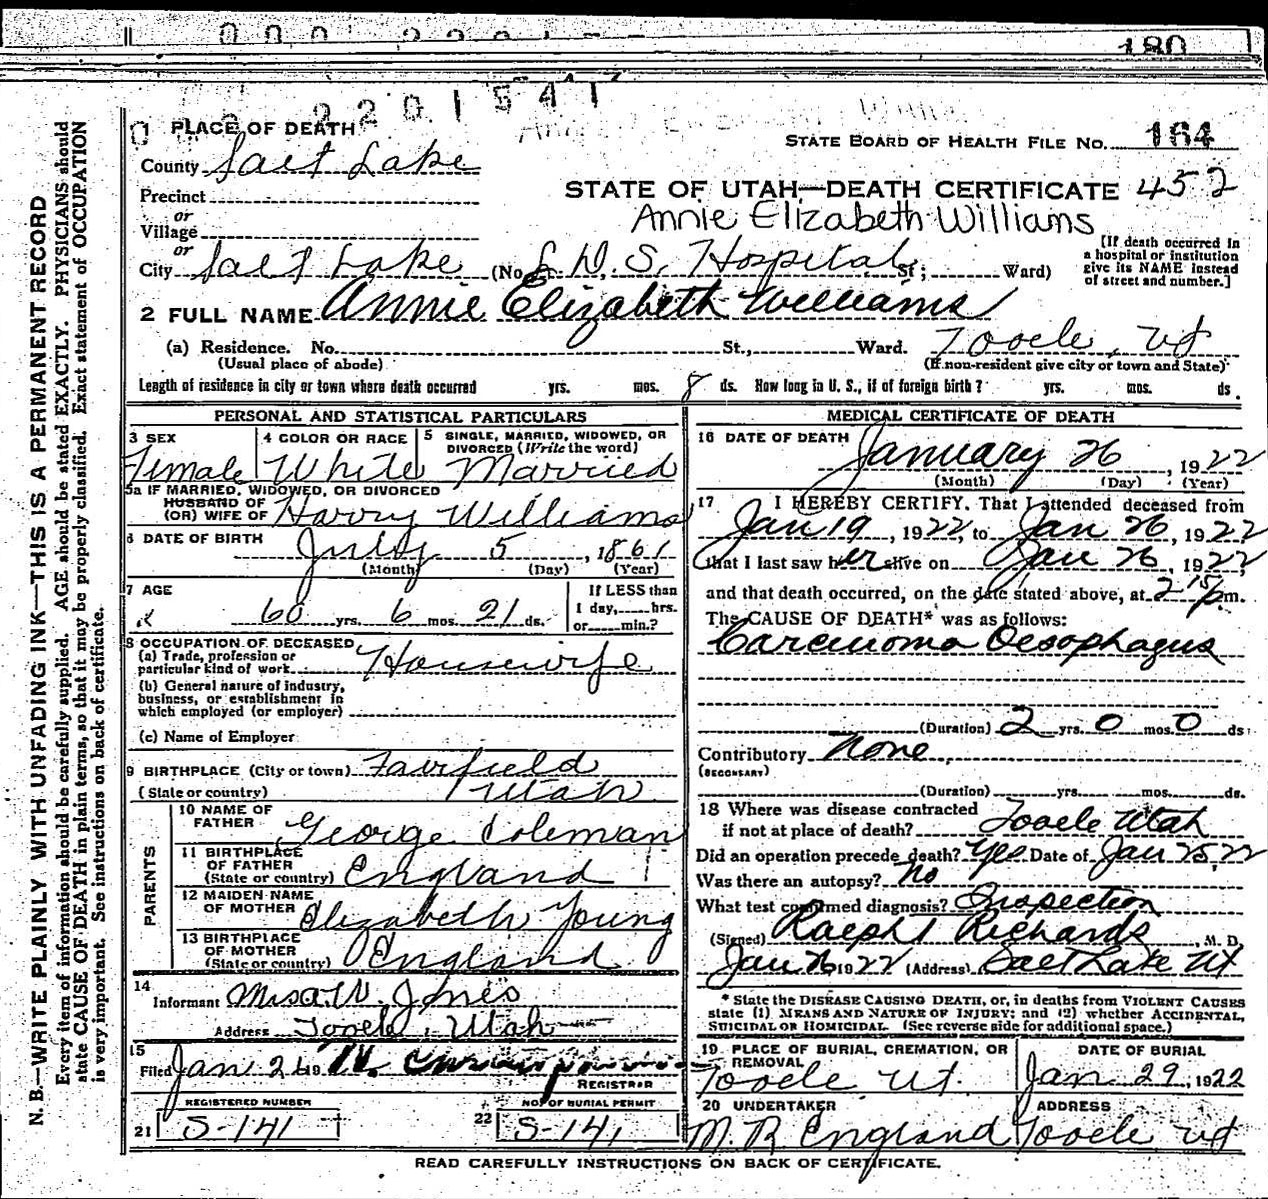 180
2201541
1 PLACE OF DEATH
STATE BOARD OF HEALTH FILE No. 164
County Salt Lake
Precinct
STATE OF UTAH—DEATH CERTIFICATE 452
or
Village
Annie Elizabeth Williams
or
City Salt Lake (No. L.D.S. Hospital St; Ward)
[If death occurred in
a hospital or institution
give its NAME instead
of street and number.]
2 FULL NAME Annie Elizabeth Williams
(a) Residence. No. St., Ward. Tooele, Ut
(Usual place of abode) (If non-resident give city or town and State)
Length of residence in city or town where death occurred yrs. mos. 8 ds. How long in U. S., if of foreign birth? yrs. mos. ds.
PERSONAL AND STATISTICAL PARTICULARS
3 SEX 4 COLOR OR RACE 5 SINGLE, MARRIED, WIDOWED, OR
DIVORCED (Write the word)
Female White Married
5a IF MARRIED, WIDOWED, OR DIVORCED
HUSBAND OF
(OR) WIFE OF Harry Williams
6 DATE OF BIRTH July 5, 1861
(Month) (Day) (Year)
7 AGE If LESS than
60 yrs. 6 mos. 21 ds. 1 day,____hrs.
or____min.?
8 OCCUPATION OF DECEASED
(a) Trade, profession or
particular kind of work Housewife
(b) General nature of industry,
business, or establishment in
which employed (or employer)
(c) Name of Employer
9 BIRTHPLACE (City or town) Fairfield
(State or country) Utah
PARENTS
10 NAME OF
FATHER George Coleman
11 BIRTHPLACE
OF FATHER
(State or country) England
12 MAIDEN NAME
OF MOTHER Elizabeth Young
13 BIRTHPLACE
OF MOTHER
(State or country) England
14
Informant Jones
Address Tooele, Utah
15
Filed Jan 26 19
REGISTRAR
REGISTERED NUMBER NO. OF BURIAL PERMIT
21 S-141 22 S-141
MEDICAL CERTIFICATE OF DEATH
16 DATE OF DEATH January 26, 1922
(Month) (Day) (Year)
17 I HEREBY CERTIFY, That I attended deceased from
Jan 19, 1922, to Jan 26, 1922
that I last saw her alive on Jan 26, 1922,
and that death occurred, on the date stated above, at 2 15 pm.
The CAUSE OF DEATH* was as follows:
Carcinoma Oesophagus
(Duration) 2 yrs. 0 mos. 0 ds.
Contributory None
(SECONDARY)
(Duration) yrs. mos. ds.
18 Where was disease contracted
if not at place of death? Tooele Utah
Did an operation precede death? Yes Date of Jan 25, 22
Was there an autopsy? No
What test confirmed diagnosis? Inspection
(Signed) Ralph T Richards, M. D.
Jan 26 1922 (Address) Salt Lake Ut
* State the DISEASE CAUSING DEATH, or, in deaths from VIOLENT CAUSES
state (1) MEANS AND NATURE OF INJURY; and (2) whether ACCIDENTAL,
SUICIDAL OR HOMICIDAL. (See reverse side for additional space.)
19 PLACE OF BURIAL, CREMATION, OR DATE OF BURIAL
REMOVAL
Tooele Ut. Jan 29, 1922
20 UNDERTAKER ADDRESS
M. R. England Tooele Ut
READ CAREFULLY INSTRUCTIONS ON BACK OF CERTIFICATE.
N. B.—WRITE PLAINLY WITH UNFADING INK—THIS IS A PERMANENT RECORD
Every item of information should be carefully supplied. AGE should be stated EXACTLY. PHYSICIANS should
state CAUSE OF DEATH in plain terms, so that it may be properly classified. Exact statement of OCCUPATION
is very important. See instructions on back of certificate.